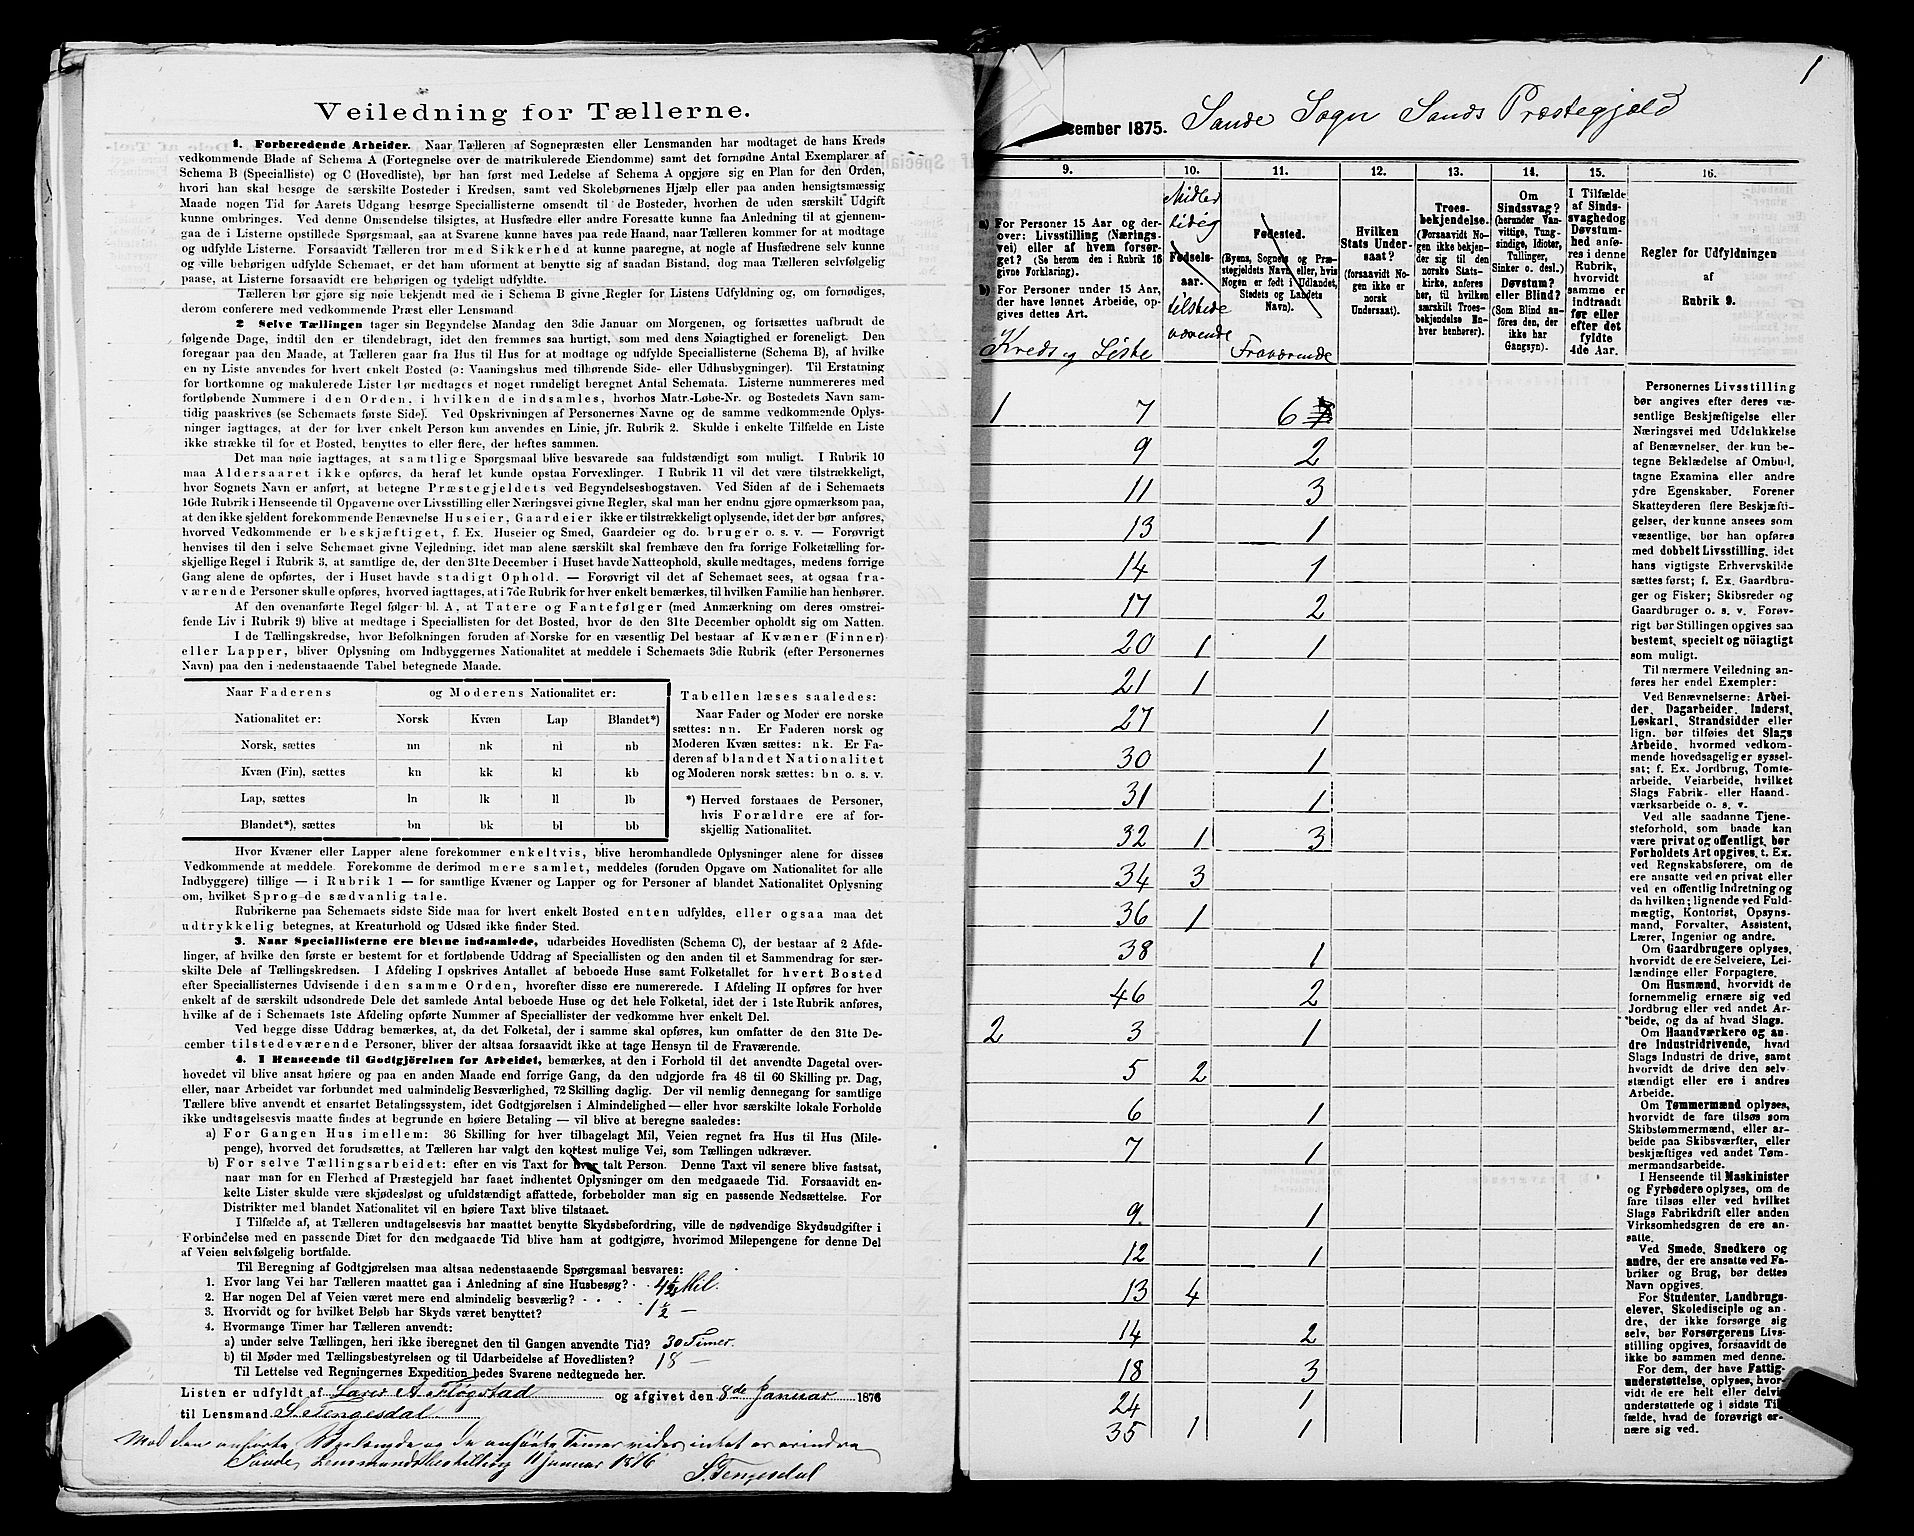 Veiledning for Tællerne.
1. Forberedende Arbeider. Naar Tælleren af Sognepræsten eller Lensmanden har modtaget de hans Kreds
vedkommende Blade af Schema A (Fortegnelse over de matrikulerede Eiendomme) samt det fornødne Antal Exemplarer af
Schema B (Specialliste) og C (Hovedliste), bør han først med Ledelse af Schema A opgjøre sig en Plan for den Orden,
hvori han skal besøge de særskilte Bosteder i Kredsen, samt ved Skolebørnenes Hjælp eller paa anden hensigtsmæssig
Maade nogen Tid før Aarets Udgang besørge Speciallisterne omsendt til de Bosteder, hvorhen de uden særskilt Udgift
kunne ombringes. Ved denne Omsendelse tilsigtes, at Husfædre eller andre Foresatte kunne faa Anledning til at gjennem-
gaa de i Listerne opstillede Spørgsmaal, saa at Svarene kunne haves paa rede Haand, naar Tælleren kommer for at modtage
og udfylde Listerne. Forsaavidt Tælleren tror med Sikkerhed at kunne paaregne, at nogle af Husfædrene selv kunne
og ville behørigen udfylde Schemaet, er det ham uforment at benytte sig af saadan Bistand, dog maa Tælleren selvfølgelig
paase, at Listerne forsaavidt ere behørigen og tydeligt udfyldte.
Tælleren bør gjøre sig nøie bekjendt med de i Schema B givne Regler for Listens Udfyldning og, om fornødiges,
derom conferere med vedkommende Præst eller Lensmand
2 Selve Tællingen tager sin Begyndelse Mandag den 3die Januar om Morgenen, og fortsættes uafbrudt de
følgende Dage, indtil den er tilendebragt, idet den fremmes saa hurtigt, som med dens Nøiagtighed er foreneligt. Den
foregaar paa den Maade, at Tælleren gaar fra Hus til Hus for at modtage og udfylde Speciallisterne (Schema B), af hvilke
en ny Liste anvendes for hvert enkelt Bosted (ɔ: Vaaningshus med tilhørende Side- eller Udhusbygninger). Til Erstatning
for bortkomne og makulerede Lister bør medtages et noget rundeligt beregnet Antal Schemata. Listerne nummereres med
fortløbende Nummere i den Orden, i hvilken de indsamles, hvorhos Matr.-Løbe-Nr. og Bostedets Navn sam-
tidig paaskrives (se Schemaets første Side). Ved Opskrivningen af Personernes Navne og de samme vedkommende Oplys-
ninger iagttages, at der for hver enkelt Person kun anvendes en Linie, jfr. Rubrik 2. Skulde i enkelte Tilfælde en Liste
ikke strække til for et Bosted, benyttes to eller flere, der heftes sammen.
Det maa nøie iagttages, at samtlige Spørgsmaal blive besvarede saa fuldstændigt som muligt. I Rubrik 10
maa Aldersaaret ikke opføres, da heraf let kunde opstaa Forvexlinger. I Rubrik 11 vil det være tilstrækkeligt,
hvor Sognets Navn er anført, at betegne Præstegjeldets ved Begyndelsesbogstaven. Ved Siden af de i Schemaets
16de Rubrik i Henseende til Opgaverne over Livsstilling eller Næringsvei givne Regler, skal man her endnu gjøre opmærksom paa,
at den ikke sjeldent forekommende Benævnelse Huseier, Gaardeier ikke er tilstrækkeligt oplysende, idet der bør anføres,
hvorved Vedkommende er beskjæftiget, f. Ex. Huseier og Smed, Gaardeier og do. bruger o. s. v. — Forøvrigt
henvises til den i selve Schemaet givne Vejledning, idet man alene særskilt skal fremhæve den fra forrige Folketælling for-
skjellige Regel i Rubrik 3, at samtlige de, der den 31te December i Huset havde Natteophold, skulle medtages, medens forrige
Gang alene de opførtes, der i Huset havde stadigt Ophold. — Forøvrigt vil det af Schemaet sees, at ogsaa fra-
værende Personer skulle opføres, hvorved iagttages, at i 7de Rubrik for hver enkelt bemærkes, til hvilken Familie han henhører.
Af den ovenanførte Regel følger bl. A, at Tatere og Fantefølger (med Anmærkning om deres omstrei-
fende Liv i Rubrik 9) blive at medtage i Speciallisten for det Bosted, hvor de den 31te December opholdt sig om Natten.
I de Tællingskredse, hvor Befolkningen foruden af Norske for en væsentlig Del bestaar af Kvæner (Finner)
eller Lapper, bliver Oplysning om Indbyggernes Nationalitet at meddele i Schemaets 3die Rubrik (efter Personernes
Navn) paa den i nedenstaaende Tabel betegnede Maade.
Naar Faderens og Moderens Nationalitet er:
Nationalitet er: Norsk Kvæn Lap Blandet*)
Norsk, sættes nn nk nl nb
Kvæn (Fin), sættes kn kk kl kb
Lap, sættes ln lk ll lb
Blandet*), sættes bn bk bl bb
Tabellen læses saaledes:
Naar Fader og Moder ere norske
sættes: nn. Er Faderen norsk og
Moderen Kvæn sættes: nk. Er Fa-
deren af blandet Nationalitet
og Moderen norsk sættes: bn o. s. v.
*) Herved forstaaes de Personer,
hvis Forældre ere af for-
skjellig Nationalitet.
Hvor Kvæner eller Lapper alene forekommer enkeltvis, blive heromhandlede Oplysninger alene for disses
Vedkommende at meddele. Forekomme de derimod mere samlet, meddeles (foruden Opgave om Nationalitet for alle
Indbyggere) tillige — i Rubrik 1 — for samtlige Kvæner og Lapper og for Personer af blandet Nationalitet Oplysning
om, hvilket Sprog de sædvanlig tale.
Rubrikerne paa Schemaets sidste Side maa for hvert enkelt Bosted enten udfyldes, eller ogsaa maa det
udtrykkelig betegnes, at Kreaturhold og Udsæd ikke finder Sted.
3. Naar Speciallisterne ere blevne indsamlede, udarbeides Hovedlisten (Schema C), der bestaar af 2 Afde-
linger, af hvilke den første er bestemt for et fortløbende Uddrag af Speciallisten og den anden til et Sammendrag for sær-
skilte Dele af Tællingskredsen. I Afdeling I opskrives Antallet af beboede Huse samt Folketallet for hvert Bosted
efter Speciallisternes Udvisende i den samme Orden, hvorefter disse ere numererede. I Afdeling II opføres for hver
enkelt af de særskilt udsondrede Dele det samlede Antal beboede Huse og det hele Folketal, idet der i 1ste Rubrik anføres,
hvilke af de i Schemaets 1ste Afdeling opførte Nummer af Speciallister der vedkomme hver enkelt Del.
Ved begge disse Uddrag bemærkes, at, da det Folketal, der i samme skal opføres, kun omfatter de den 31te De-
cember tilstedeværende Personer, bliver der altsaa forsaavidt ikke at tage Hensyn til de Fraværende.
4. I Henseende til Godtgjörelsen for Arbeidet, bemærkes, at den i Forhold til det anvendte Dagetal over-
hovedet vil blive ansat høiere og paa en anden Maade end forrige Gang, da den udgjorde fra 48 til 60 Skilling pr. Dag,
eller, naar Arbeidet var forbundet med ualmindelig Besværlighed, 72 Skilling daglig. Der vil nemlig dennegang for samtlige
Tællere blive anvendt et ensartet Betalingssystem, idet Godtgjørelsen i Almindelighed — eller hvor særskilte lokale Forholde
ikke undtagelsesvis maatte findes at begrunde en høiere Betaling — vil blive at beregne saaledes:
a) For Gangen Hus imellem: 36 Skilling for hver tilbagelagt Mil, Veien regnet fra Hus til Hus (Mile-
penge), hvorved det forudsættes, at Tælleren har valgt den kortest mulige Vei, som Tællingen udkræver.
b) For selve Tællingsarbeidet: efter en vis Taxt for hver talt Person. Denne Taxt vil senere blive fastsat,
naar man for en Flerhed af Præstegjeld har faaet indhentet Oplysninger om den medgaaede Tid. Forsaavidt en-
kelte Lister skulde være skjødesløst og ufuldstændigt affattede, forbeholder man sig en passende Nedsættelse. For
Distrikter med blandet Nationalitet vil en høiere Taxt blive tilstaaet.
I Tilfælde af, at Tælleren undtagelsesvis har maattet benytte Skydsbefordring, ville de nødvendige Skydsudgifter i
Forbindelse med en passende Diæt for den medgaaede Tid blive ham at godtgjøre, hvorimod Milepengene for denne Del
af Veien selvfølgelig bortfalde.
Til Beregning af Godtgjørelsen maa altsaa nedenstaaende Spørgsmaal besvares:
1. Hvor lang Vei har Tælleren maattet gaa i Anledning af sine Husbesøg? 4½ Mil.
2. Har nogen Del af Veien været mere end almindelig besværlig? 1½ —
3. Hvorvidt og for hvilket Beløb har Skyds været benyttet?
4. Hvormange Timer har Tælleren anvendt:
a) under selve Tællingen, heri ikke iberegnet den til Gangen anvendte Tid? 30 Timer.
b) til Møder med Tællingsbestyrelsen og til Udarbeidelse af Hovedlisten? 18 —
Til Lettelse ved Regningernes Expedition bedes Svarene nedtegnede her.
Listen er udfyldt af Lars A. Fløgstad og afgivet den 8de Januar 1876
til Lensmand S. Tengesdal
Med den anførte Veilængde og de anførte Timer vides intet at erindre
Sande Lensmandsbestilling 11 Januar 1876
S. Tengesdal
1
cember 1875. Sande Sogn Sands Præstegjeld
9. 10. 11. 12. 13. 14. 15. 16.
a) For Personer 15 Aar og der-
over: Livsstilling (Nærings-
vei) eller af hvem forsør-
get? (Se herom den i Rubrik 16
givne Forklaring).
b) For Personer under 15 Aar,
der have lønnet Arbeide, op-
gives dettes Art.
Kreds og Liste
Midler
tidig
Fødsels-
aar.
tilstede
værende
Fødested.
(Byens, Sognets og Præ-
stegjeldets Navn eller, hvis
Nogen er født i Udlandet,
Stedets og Landets
Navn).
Fraværende
Hvilken
Stats Under-
saat?
(forsaavidt No-
gen ikke er
norsk
Undersaat).
Troes-
bekjendelse.
(Forsaavidt No-
gen ikke bekjen-
der sig til den
norske Stats-
kirke, anføres
her, til hvilken
særskilt Troes-
bekjendelse En-
hver henhører).
Om
Sindssvag?
(herunder Van-
vittige, Tung-
sindige, Idioter,
Tullinger,
Sinker o. desl.)
Døvstum?
eller Blind?
(Som Blind an-
føres den, der
ikke har
Gangsyn).
I Tilfælde
af Sinds-
svaghed og
Døvstum-
hed anfø-
res i denne
Rubrik,
hvorvidt
samme er
indtraadt
før eller
efter det
fyldte
4de Aar.
Regler for Udfyldningen
af
Rubrik 9.
1 7 6
9 2
11 3
13 1
14 1
17 2
20 1 1
21 1
27 1
30 1
31 1
32 1 3
34 3
36 1
38 1
46 2
2 3 1
5 2
6 1
7 1
9. 1
12 1
13 4
14 2
18 3
24 1
35 1 1
Personernes Livsstilling
bør angives efter deres væ-
sentlige Beskjæftigelse eller
Næringsvei med Udelukkelse
af Benævnelser, der kun be-
tegne Beklædelse af Ombud,
tagne Examina eller andre
ydre Egenskaber. Forener
Skatteyderen flere Beskjæfti-
gelser, der kunne ansees som
væsentlige, bør han opføres
med dobbelt Livsstilling, idet
hans vigtigste Erhvervskilde
sættes først; f. Ex. Gaardbru-
ger og Fisker; Skibsreder og
Gaardbruger o. s. v. Forøv-
rigt bør Stillingen opgives saa
bestemt, specielt og nöiagtigt
som muligt.
Til nærmere Veiledning an-
føres her endel Exempler:
Ved Benævnelserne: Arbei-
der, Dagarbeider, Inderst,
Løskarl, Strandsidder eller
lign. bør tilføies det Slags
Arbeide, hvormed vedkom-
mende hovedsagelig er syssel-
sat; f. Ex. Jordbrug, Tomte-
arbeide, Veiarbeide, hvilket
Slags Fabrik- eller Haand-
værksarbeide o. s. v.
Ved alle saadanne Tjene-
steforhold, som baade kan
være privat og offentligt, bør
Forholdets Art opgives, t. Ex.
ved Regnskabsførere, om de
ere ansatte ved en privat eller
ved en offentlig Indretning og
da hvilken; lignende ved Fuld-
mægtig, Kontorist, Opsyns-
mand, Forvalter, Assistent,
Lærer, Ingeniør og andre.
Om Gaardbrugere oplyses,
hvorvidt de ere Selveiere, Lei-
lændinge eller Forpagtere.
Om Husmænd, hvorvidt de
fornemmelig ernære sig ved
Jordbrug eller ved andet Ar-
beide, og da af hvad Slags.
Om Haandværkere og an-
dre Industridrivende, hvad
Slags Industri de drive, samt
hvorvidt de drive den selv-
stændigt eller ere i andres
Arbeide.
Om Tømmermænd oplyses,
hvorvidt de fare tilsøs som
Skibstømmermænd, eller ar-
beide paa Skibsværfter, eller
beskjæftiges ved andet Tøm-
mermandsarbeide.
I Henseende til Maskinister
og Fyrbødere oplyses, om de
fare tilsøs eller ved hvilket
Slags Fabrikdrift eller anden
Virksomhedsgren de ere an-
satte.
Ved Smede, Snedkere og
andre, der ere ansatte ved Fa-
briker og Brug, bør dettes
Navn opgives.
For Studenter, Landbrugs-
elever, Skoledisciple og an-
dre, der ikke forsørge sig
selv, bør Forsørgerens Livs-
stilling opgives, forsaavidt de
ikke bo sammen med denne.
For dem, der have Fattig-
understøttelse, oplyses, hvor-
vidt de ere helt eller delvis
understøttede og i sidste Til-
fælde, hvad de forøvrigt er-
nære sig ved.